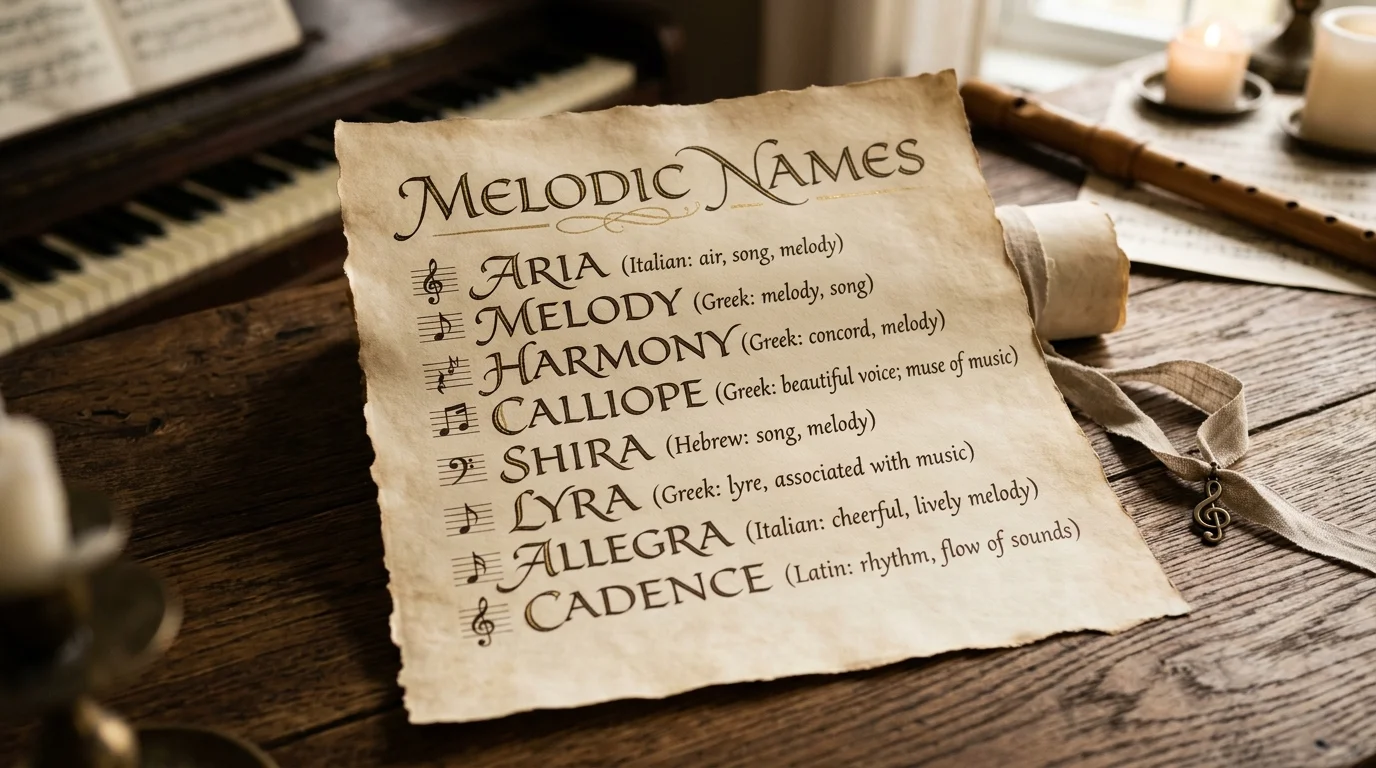 MELODIC NAMES
ARIA (Italian: air, song, melody)
MELODY (Greek: melody, song)
HARMONY (Greek: concord, melody)
CALLIOPE (Greek: beautiful voice; muse of music)
SHIRA (Hebrew: song, melody)
LYRA (Greek: lyre, associated with music)
ALLEGRA (Italian: cheerful, lively melody)
CADENCE (Latin: rhythm, flow of sounds)